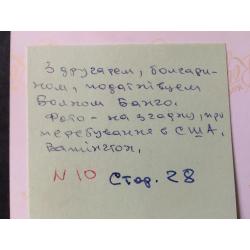 З другатем, болгари-
ном, податківцем
Волном Банго.
Фото - на згадку, при
перебування в США.
Вашінгтон,
N 10 Стор. 28